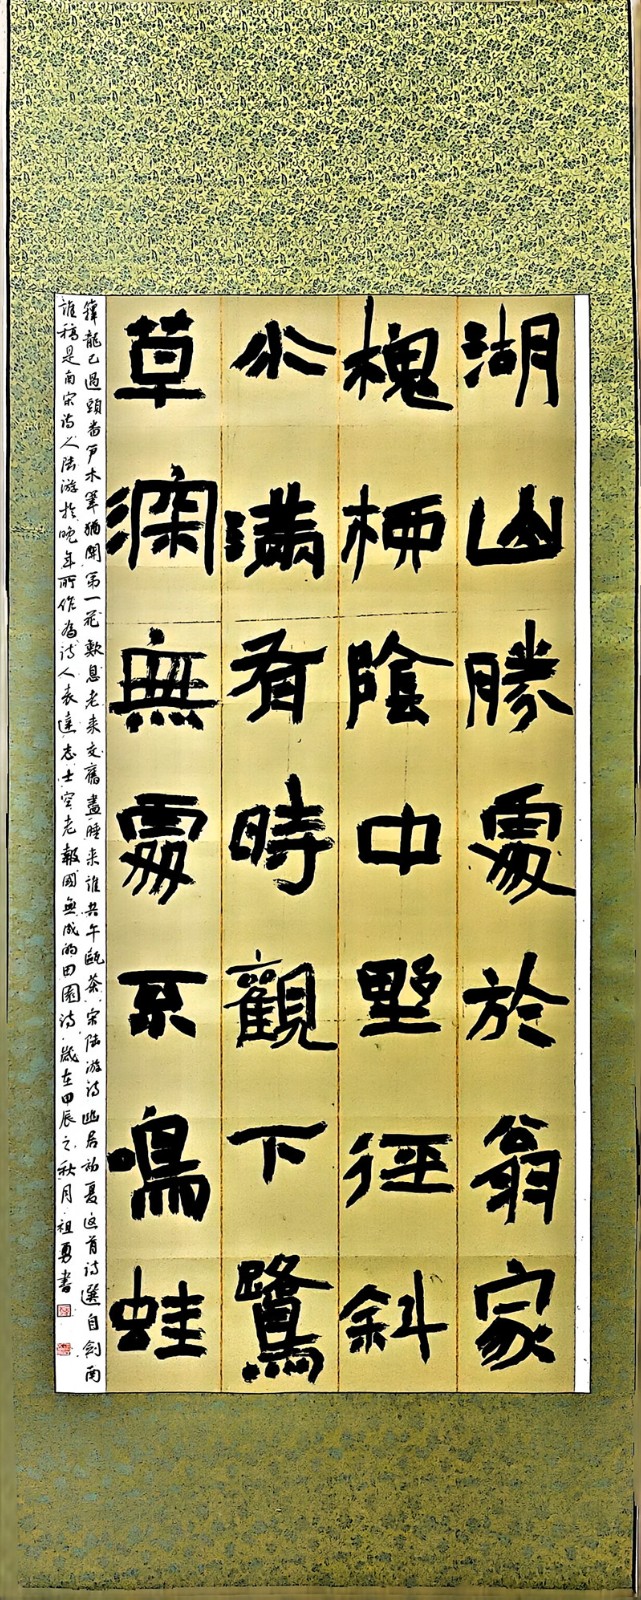 湖山勝處於翁家
槐桺陰中墅徑斜
水滿有時觀下鷺
草深無處不鳴蛙
籜龍已過頭番笋木筆猶開第一花歎息老来交舊盡睡来誰共午甌茶 宋陆游诗幽居初夏这首诗選自剑南
诗稿是南宋诗人陆游於晚年所作為诗人表達志士空老報國無成的田園诗 歲在甲辰之秋月 祖勇書